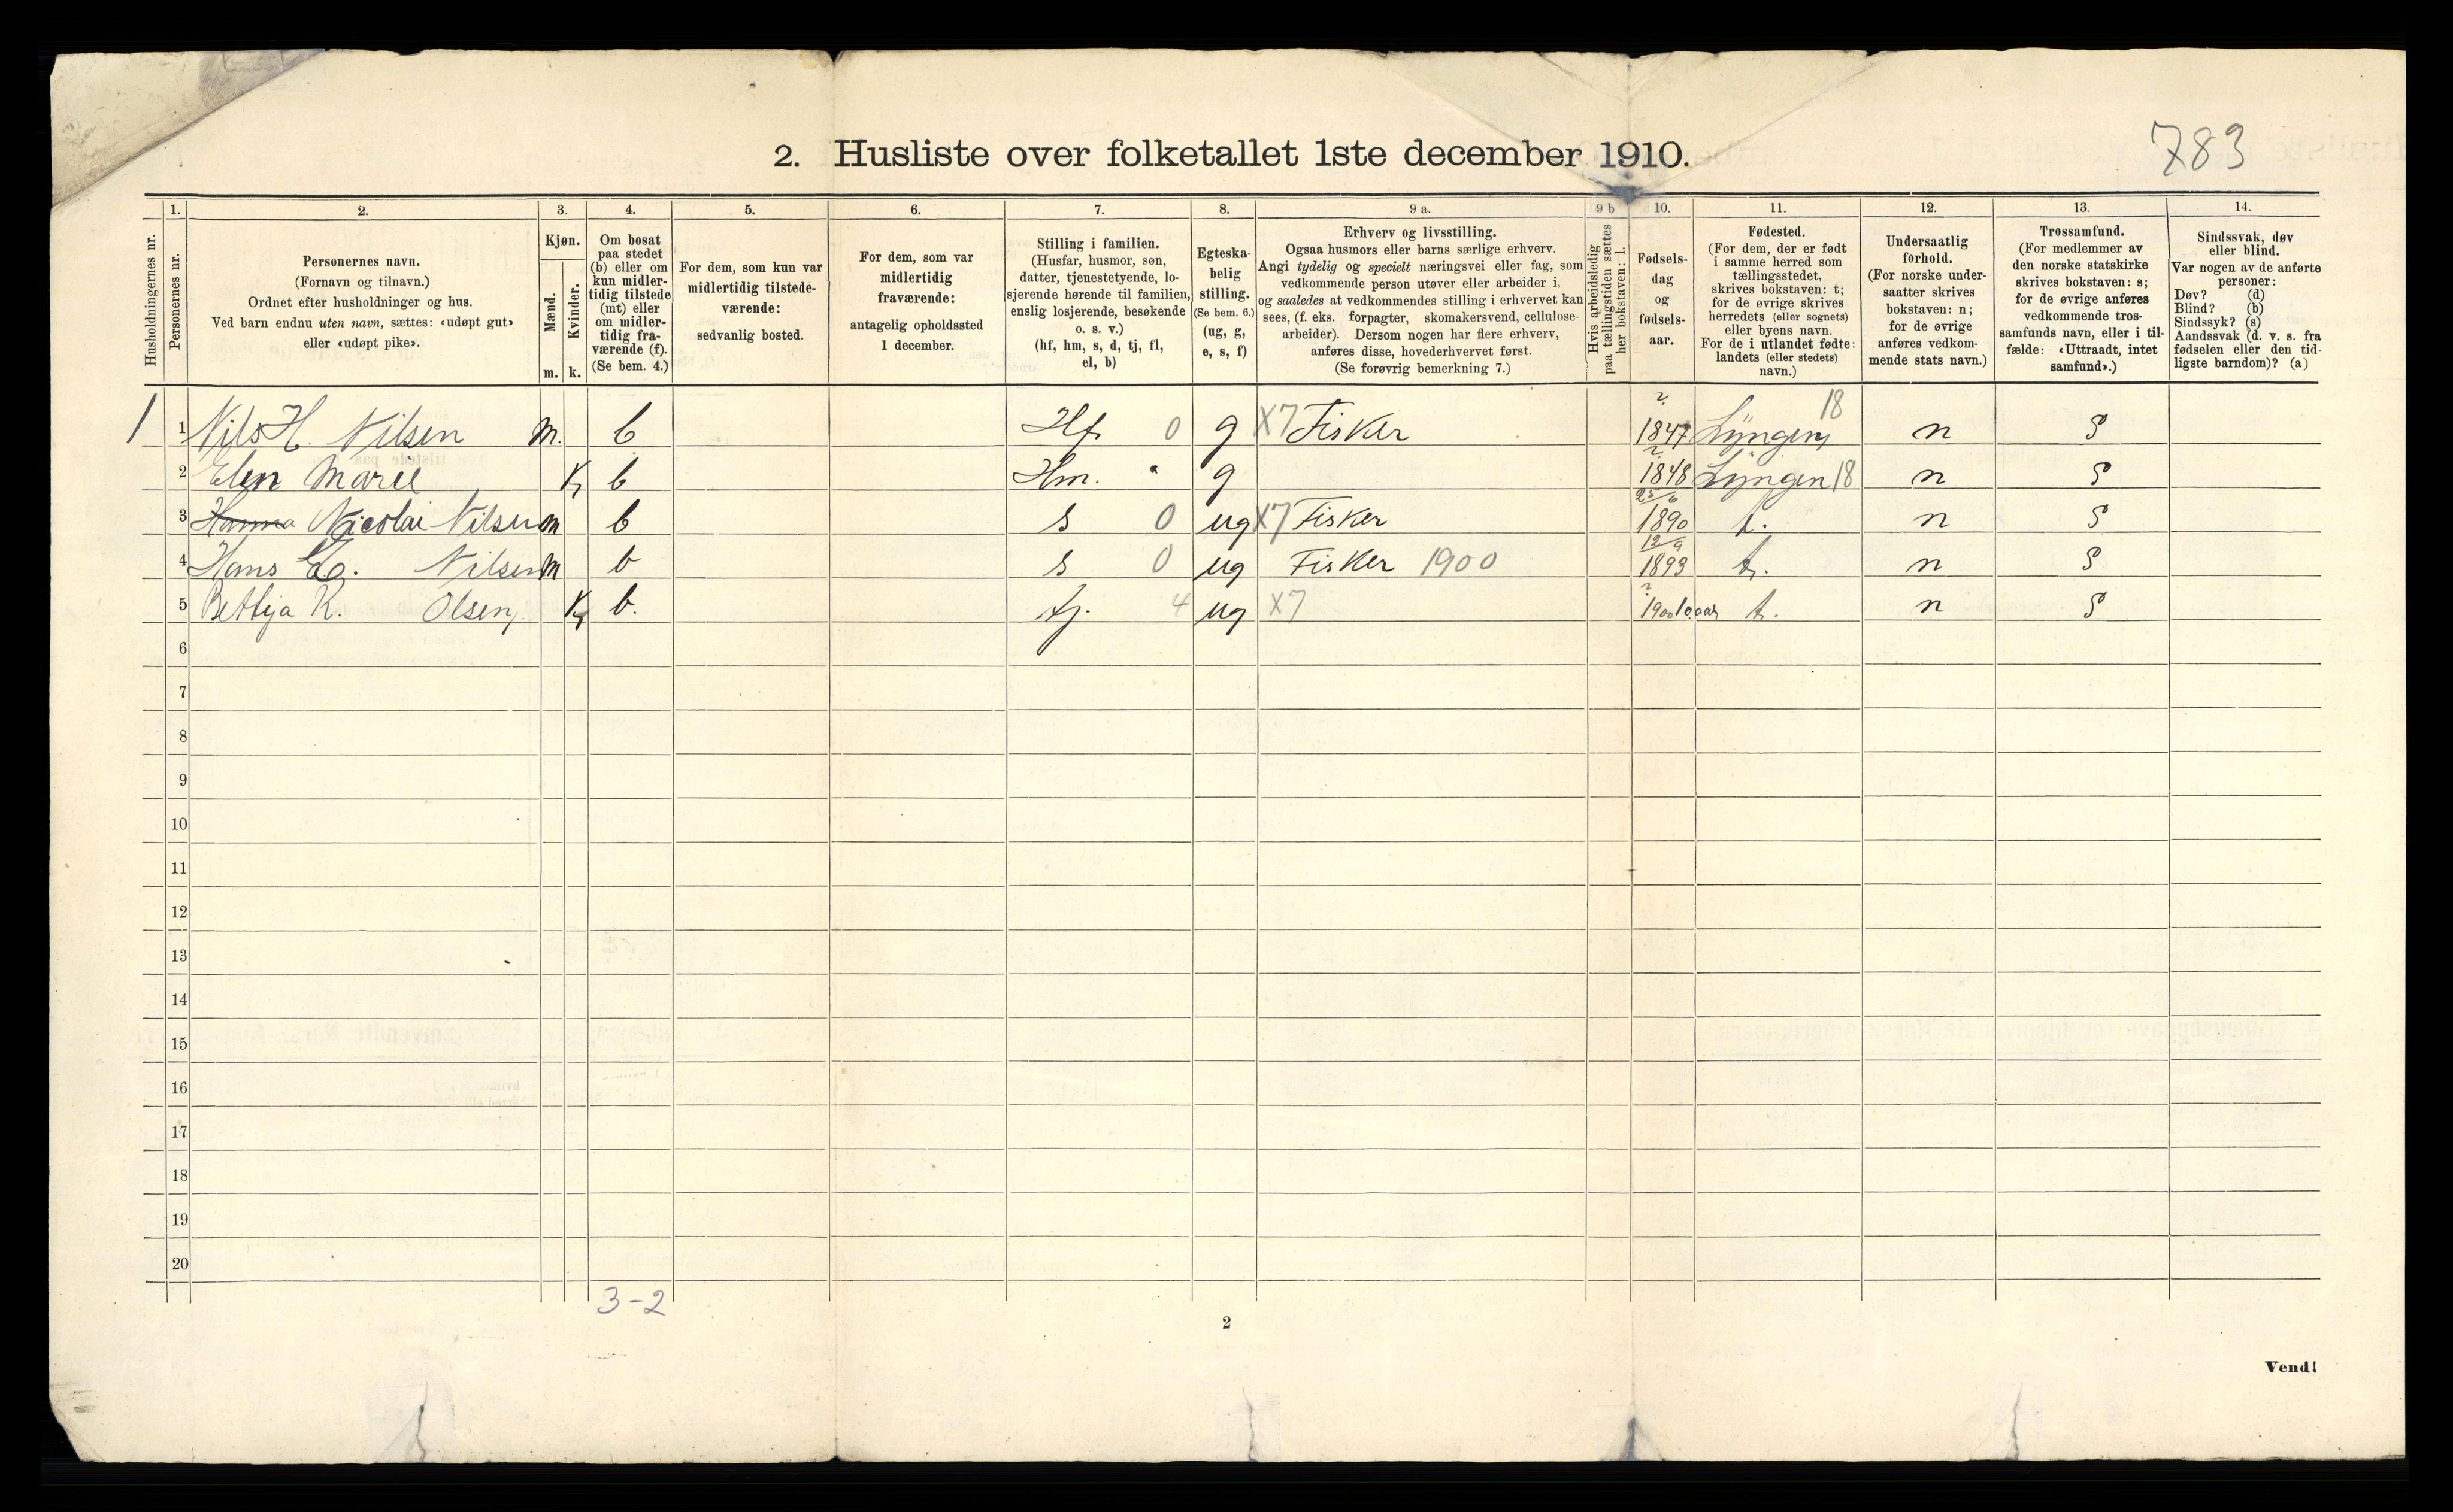 783
2. Husliste over folketallet 1ste december 1910.
Husholdningernes nr.
1.
Personernes nr.
2.
Personernes navn.
(Fornavn og tilnavn.)
Ordnet efter husholdninger og hus.
Ved barn endnu uten navn, sættes: «udøpt gut»
eller «udøpt pike».
3.
Kjøn.
Mænd.
Kvinder.
m. k.
4.
Om bosat
paa stedet
(b) eller om
kun midler-
tidig tilstede
(mt) eller
om midler-
tidig fra-
værende (f).
(Se bem. 4.)
5.
For dem, som kun var
midlertidig tilstede-
værende:
sedvanlig bosted.
6.
For dem, som var
midlertidig
fraværende:
antagelig opholdssted
1 december.
7.
Stilling i familien.
(Husfar, husmor, søn,
datter, tjenestetyende, lo-
sjerende hørende til familien,
enslig losjerende, besøkende
o. s. v.)
(hf, hm, s, d, tj, fl,
el, b)
8.
Egteska-
belig
stilling.
(Se bem. 6.)
(ug, g,
e, s, f)
9 a.
Erhverv og livsstilling.
Ogsaa husmors eller barns særlige erhverv.
Angi tydelig og specielt næringsvei eller fag, som
vedkommende person utøver eller arbeider i,
og saaledes at vedkommendes stilling i erhvervet kan
sees, (f. eks. forpagter, skomakersvend, cellulose-
arbeider). Dersom nogen har flere erhverv,
anføres disse, hovederhvervet først.
(Se forøvrig bemerkning 7.)
9 b
Hvis arbeidsledig
paa tællingstiden sættes
her bokstaven: l.
10.
Fødsels-
dag
og
fødsels-
aar.
11.
Fødested.
(For dem, der er født
i samme herred som
tællingsstedet,
skrives bokstaven: t;
for de øvrige skrives
herredets (eller sognets)
eller byens navn.
For de i utlandet fødte:
landets (eller stedets)
navn.)
12.
Undersaatlig
forhold.
(For norske under-
saatter skrives
bokstaven: n;
for de øvrige
anføres vedkom-
mende stats navn.)
13.
Trossamfund.
(For medlemmer av
den norske statskirke
skrives bokstaven: s;
for de øvrige anføres
vedkommende tros-
samfunds navn, eller i til-
fælde: «Uttraadt, intet
samfund».)
14.
Sindssvak, døv
eller blind.
Var nogen av de anførte
personer:
Døv? (d)
Blind? (b)
Sindssyk? (s)
Aandssvak (d. v. s. fra
fødselen eller den tid-
ligste barndom)? (a)
1 1 Nils H. Nilsen m. b Hf 0 g X7 Fisker ? 1847 Lyngen 18 n S
2 Elen Marie K b Hm. " g ? 1848 Lyngen 18 n S
3 Hanna Nicolai Nilsen m b s 0 ug X7 Fisker 25/6 1890 t. n S
4 Hans Nilsen m b s 0 ug Fisker 1900 12/9 1893 t. n S
5 Bethja K. Olsen K b. tj. 4 ug X7 ? 1900 10 aar t. n S
6
7
8
9
10
11
12
13
14
15
16
17
18
19
20
3-2
2
Vend!